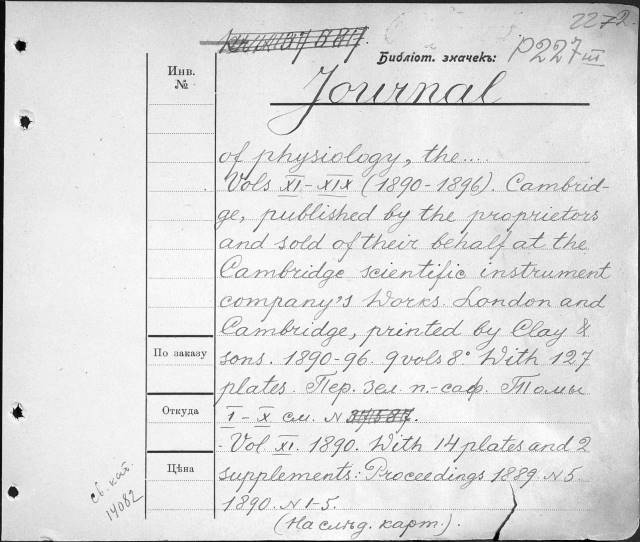 2272
Библіот. значекъ: P227 III
Инв.
№
Journal
of physiology, the....
Vols XI-XIX (1890-1896). Cambrid-
ge, published by the proprietors
and sold of their behalf at the
Cambridge scientific instrument
company's Works. London and
Cambridge, printed by Clay &
sons. 1890-96. 9 vols 8° With 127
plates. Пер. зел. п.-саф. Томы
I-X см. N 37587.
Vol XI. 1890. With 14 plates and 2
supplements: Proceedings 1889 N 5.
1890. N 1-5.
(На слѣд. карт.).
По заказу
Откуда
Цѣна
св. кат.
14082